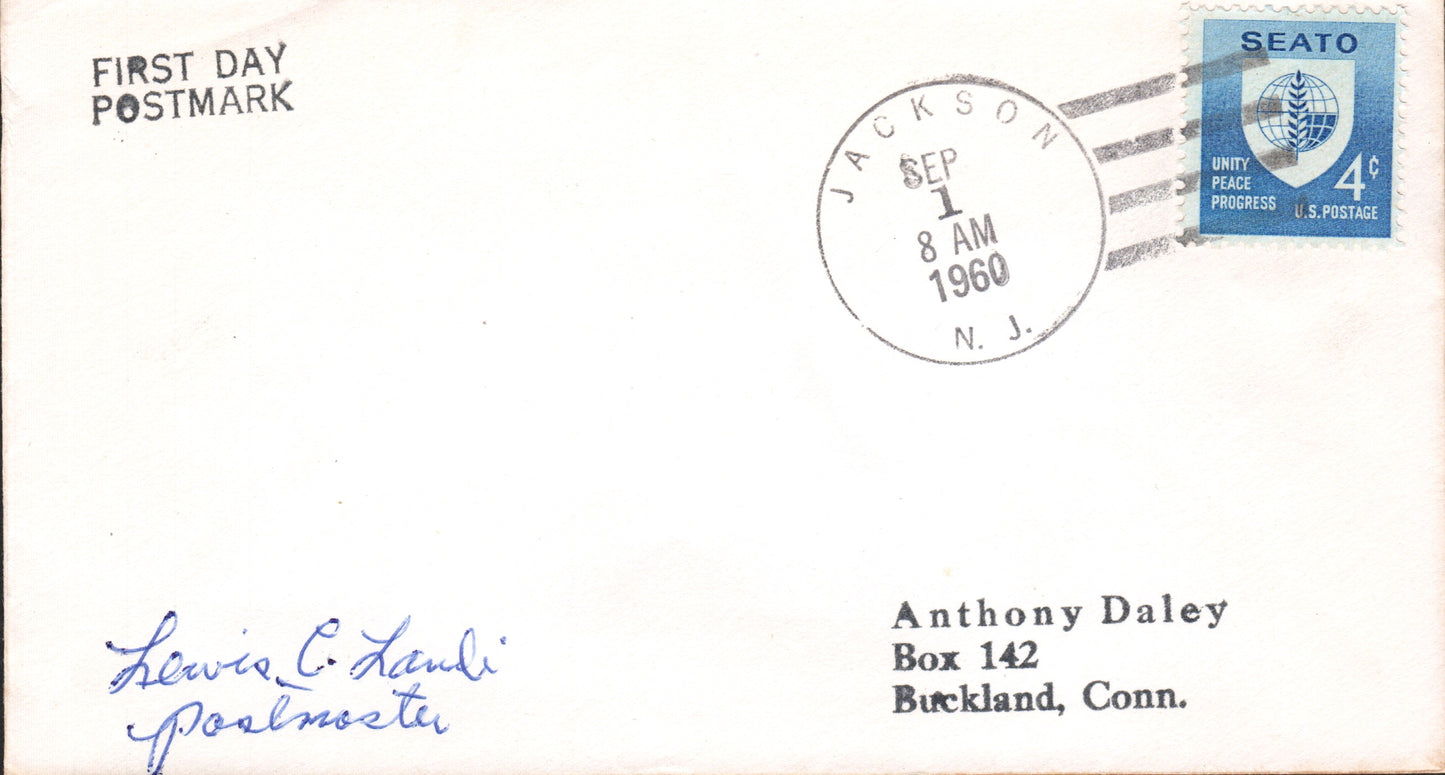 FIRST DAY
POSTMARK
JACKSON
SEP
1
8 AM
1960
N. J.
SEATO
UNITY
PEACE
PROGRESS
4¢
U.S. POSTAGE
Lewis C. Landi
Postmaster
Anthony Daley
Box 142
Buckland, Conn.